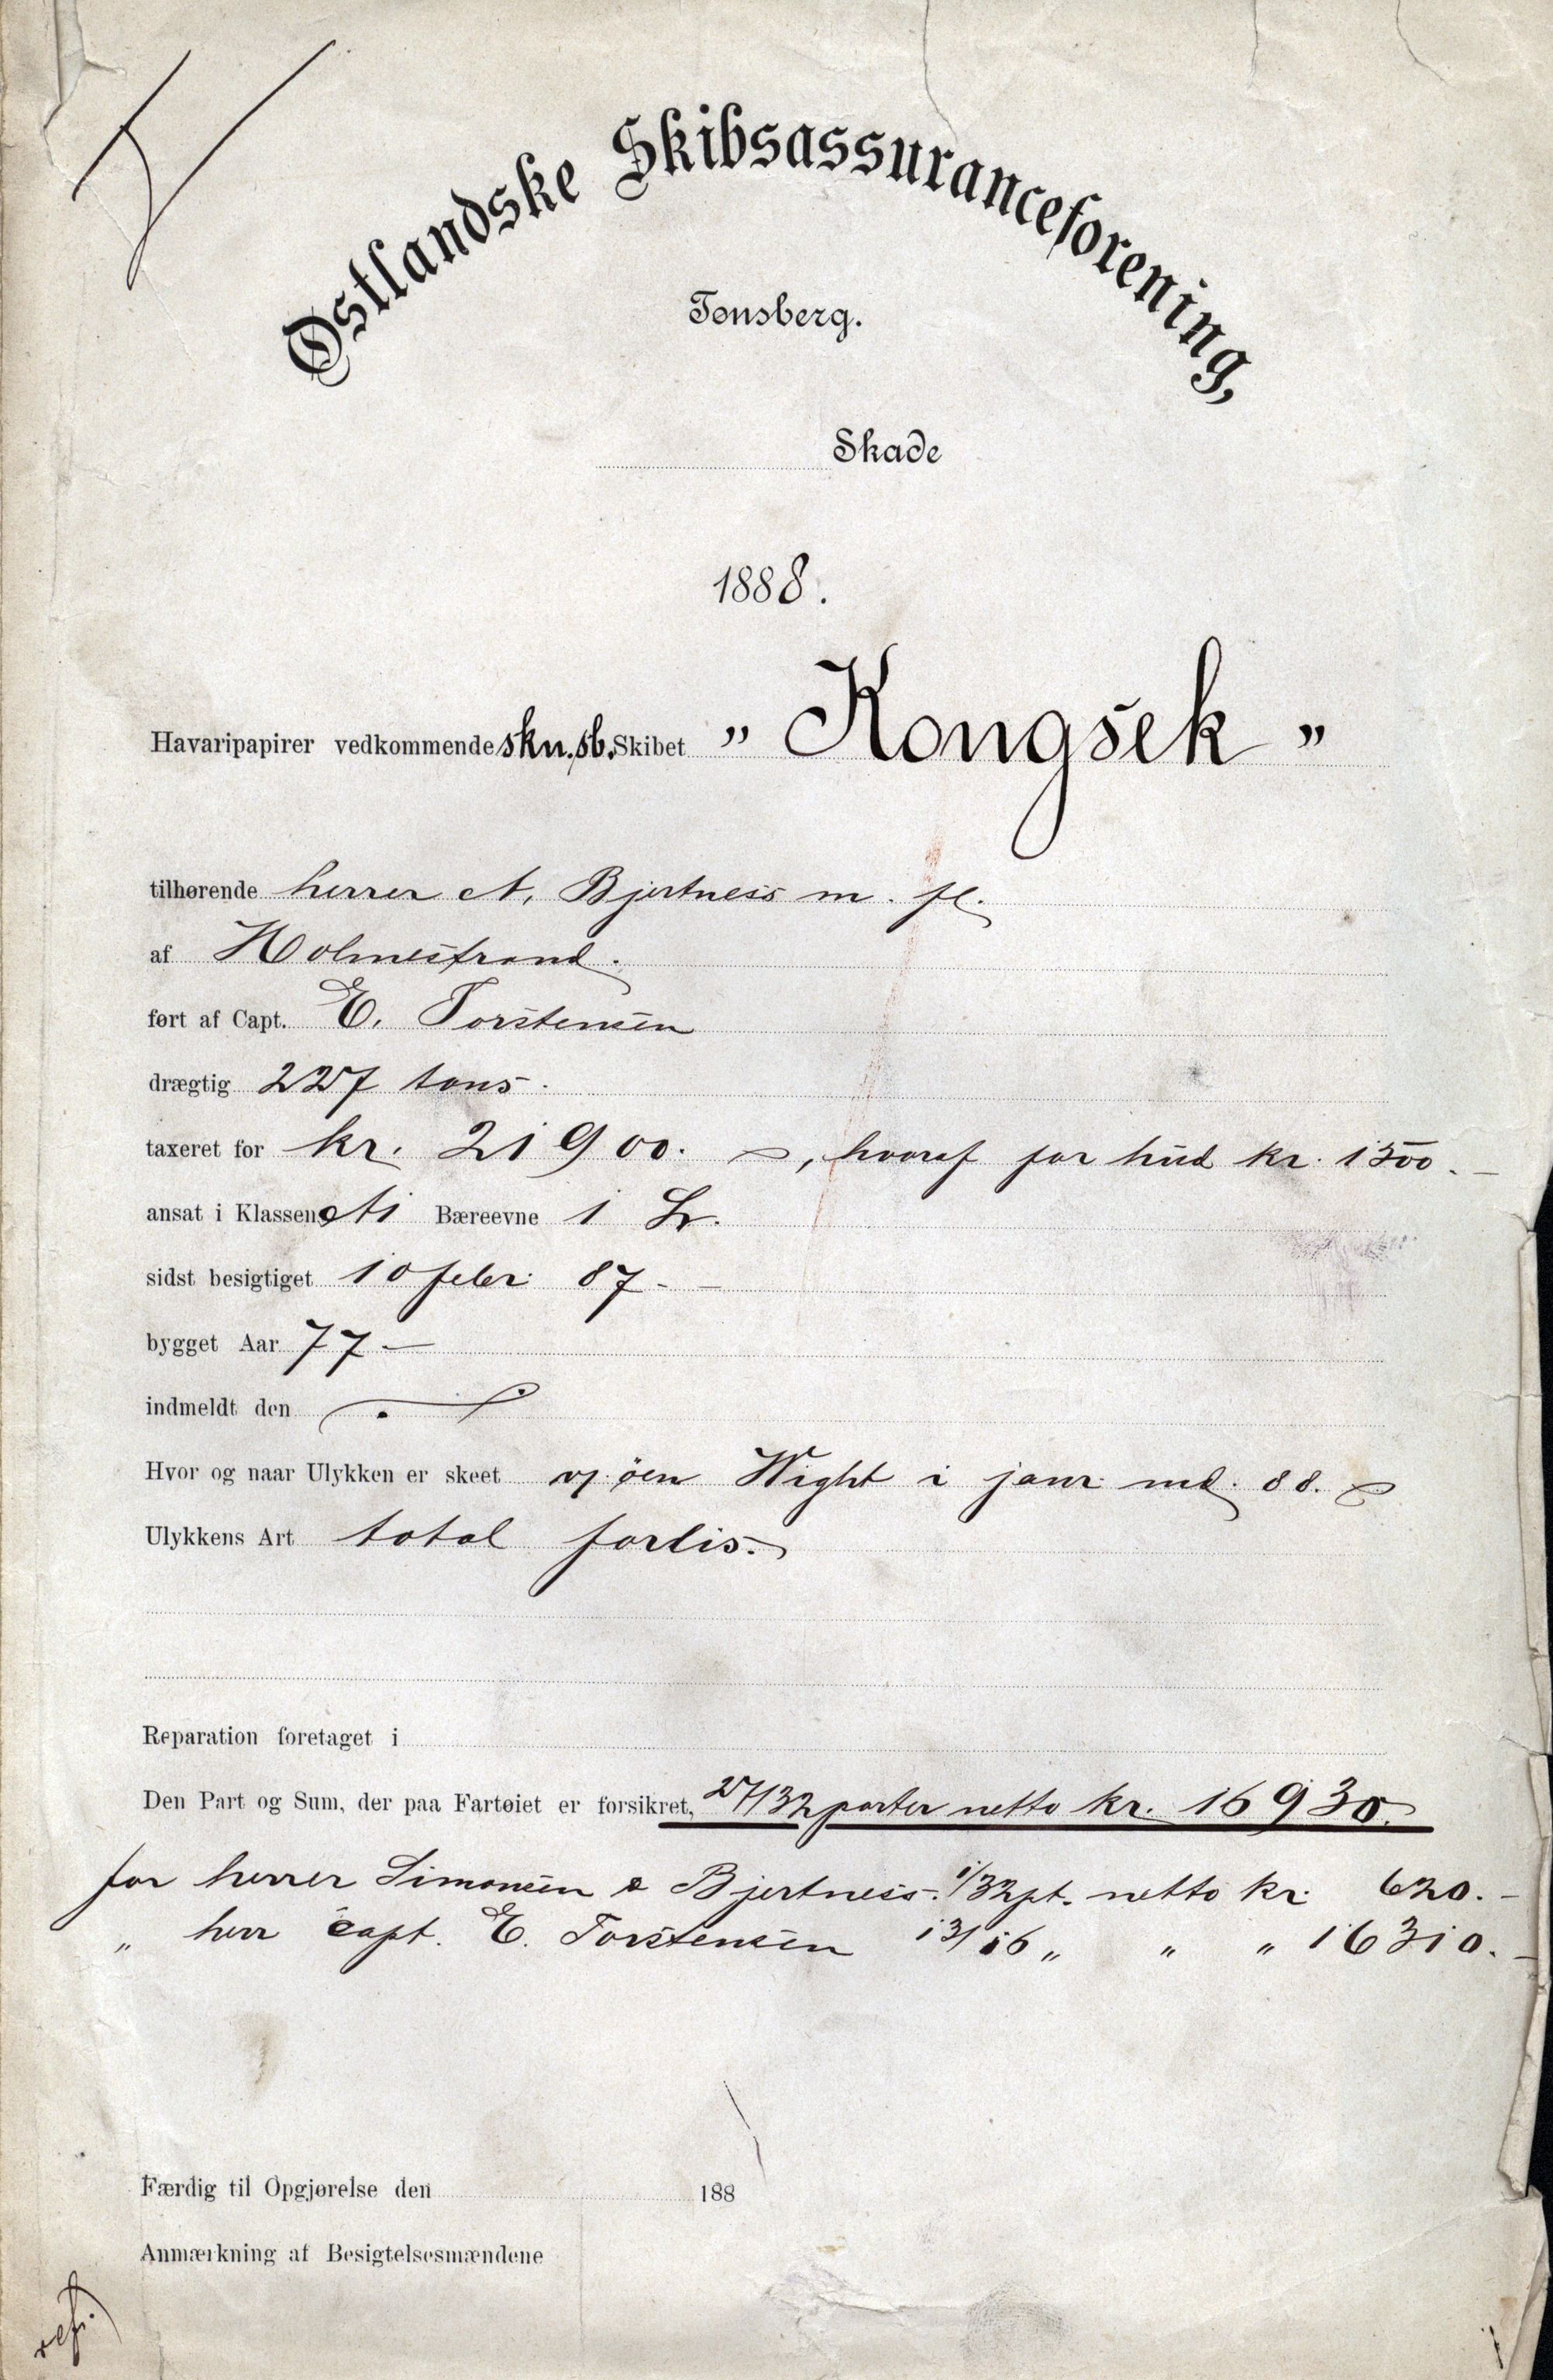 Østlandske Skibsassuranceforening,
Tønsberg.
Skade
1888.
Havaripapirer vedkommende skn. sb. Skibet " Kongsek "
tilhørende herrer A. Bjertness m. fl.
af Holmestrand.
ført af Capt. E. Torstensen
drægtig 227 tons.
taxeret for kr. 21900. , hvoraf for hud kr. 1500.-
ansat i Klassen A1 Bæreevne 1 Lr.
sidst besigtiget 10 febr. 87. -
bygget Aar 77 -
indmeldt den
Hvor og naar Ulykken er skeet v/ øen Wight i janr. md. 88.
Ulykkens Art total forlis.
Reparation foretaget i
Den Part og Sum, der paa Fartøiet er forsikret, 27/32 parter netto kr. 16930.
for herrer Simonsen & Bjertness. 1/32 pt. netto kr. 620.-
" herr capt. E. Torstensen 13/16 " " " 16310.-
Færdig til Opgjørelse den 188
Anmærkning af Besigtelsesmændene